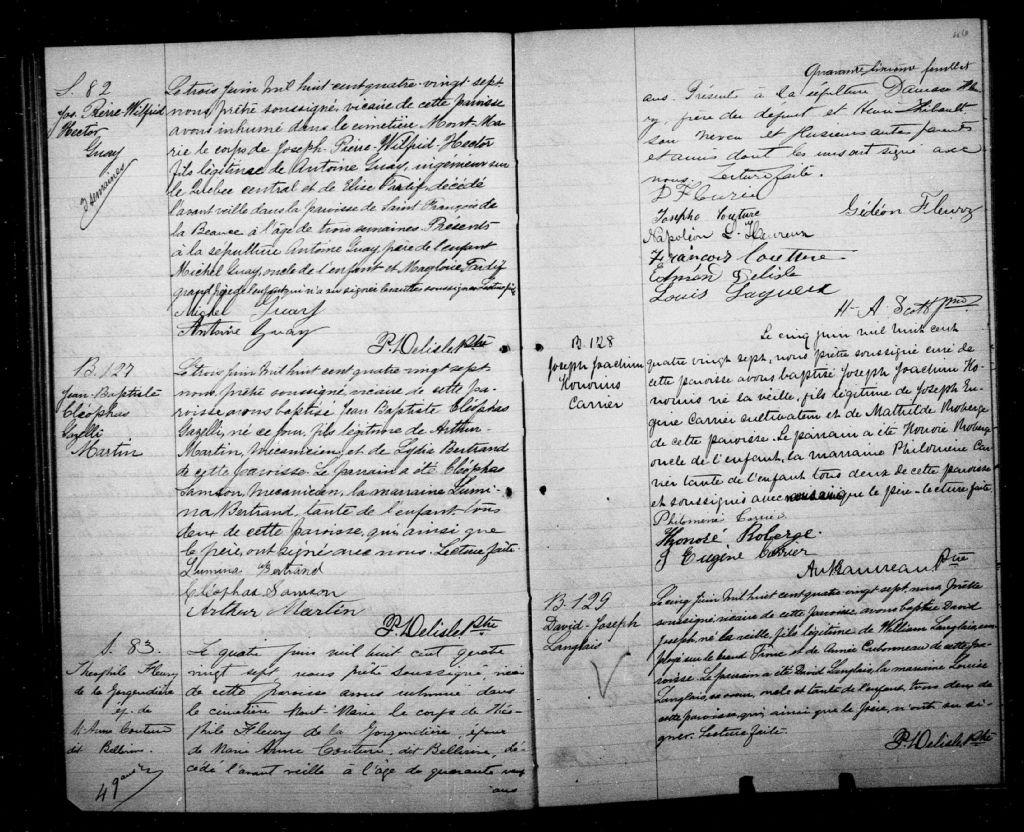 S. 82
Jos. Pierre-Wilfrid
Hector
Guay
3 semaines
Le trois juin mil huit cent quatre-vingt sept
nous, prêtre soussigné, vicaire de cette paroisse
avons inhumé dans le cimetière Mont-Ma-
rie le corps de Joseph-Pierre-Wilfrid-Hector
fils légitime de Antoine Guay, ingénieur sur
le Québec central et de Elise Tardif, décédé
l'avant veille dans la paroisse de Saint François de
la Beauce à l'âge de trois semaines. Présents
à la sépulture Antoine Guay, père de l'enfant
Michel Guay, oncle de l'enfant et Magloire Tardif
grand père de l'enfant qui n'a su signer les autres soussignés. Lecture faite
Michel Guay
Antoine Guay
P. Delisle Ptre
B. 127
Jean-Baptiste
Cléophas
Gazelli
Martin
Le trois juin mil huit cent quatre vingt sept
nous, prêtre soussigné, vicaire de cette pa-
roisse avons baptisé Jean Baptiste Cléophas
Gazelli, né ce jour, fils légitime de Arthur
Martin, mécanicien et de Lydia Bertrand
de cette paroisse. Le parrain a été Cléophas
Samson, mécanicien, la marraine Lumi-
na Bertrand, tante de l'enfant tous
deux de cette paroisse, qui, ainsi que
le père, ont signé avec nous. Lecture faite.
Lumina Bertrand
Cléophas Samson
Arthur Martin
P. Delisle Ptre
S. 83.
Théophile Fleury
de la Gorgendière
ép. de
M. Anne Couture
dit Bellerive.
49 ans
Le quatre juin mil huit cent quatre
vingt sept, nous prêtre soussigné, vicai
de cette paroisse avons inhumé dans
le cimetière Mont-Marie le corps de Théo-
phile Fleury de la Gorgendière, époux
de Marie Anne Couture, dit Bellerive, dé-
cédé l'avant veille à l'âge de quarante neuf
ans
46
Quarante sixième feuillet
ans. Présents à la sépulture Damase Fleu-
ry, frère du défunt et Henri Thibault
son neveu et plusieurs autres parents
et amis dont les uns ont signé avec
nous. Lecture faite.
D Fleurie
Josephe Couture
Gédéon Fleury
Napoléon L'Heureux
François Couture
Edmond Delisle
Louis Jagueux
H-A Scott ptre
B. 128
Joseph Joachim
Honorius
Carrier
Le cinq juin mil huit cent
quatre vingt sept, nous, prêtre soussigné curé de
cette paroisse avons baptisé Joseph Joachim Ho-
norius né la veille, fils légitime de Joseph Eu-
gène Carrier cultivateur et de Mathilde Roberge
de cette paroisse. Le parrain a été Honoré Roberge
oncle de l'enfant, la marraine Philomène Car-
rier tante de l'enfant tous deux de cette paroisse
et soussignés avec nous ainsi que le père - lecture faite
Philomène Carrier
Honoré Roberge
J Eugène Carrier
Ptre
B. 129
David-Joseph
Langlais
Le cinq juin mil huit cent quatre vingt sept, nous, prêtre
soussigné, vicaire de cette paroisse avons baptisé David
Joseph, né la veille, fils légitime de William Langlais, em-
ployé sur le Grand Tronc et de Aimée Carbonneau de cette pa-
roisse. Le parrain a été David Langlais, la marraine Louise
Langlais, sa sœur, oncle et tante de l'enfant, tous deux de
cette paroisse, qui, ainsi que le père, n'ont su si-
gner. Lecture faite
P. Delisle Ptre